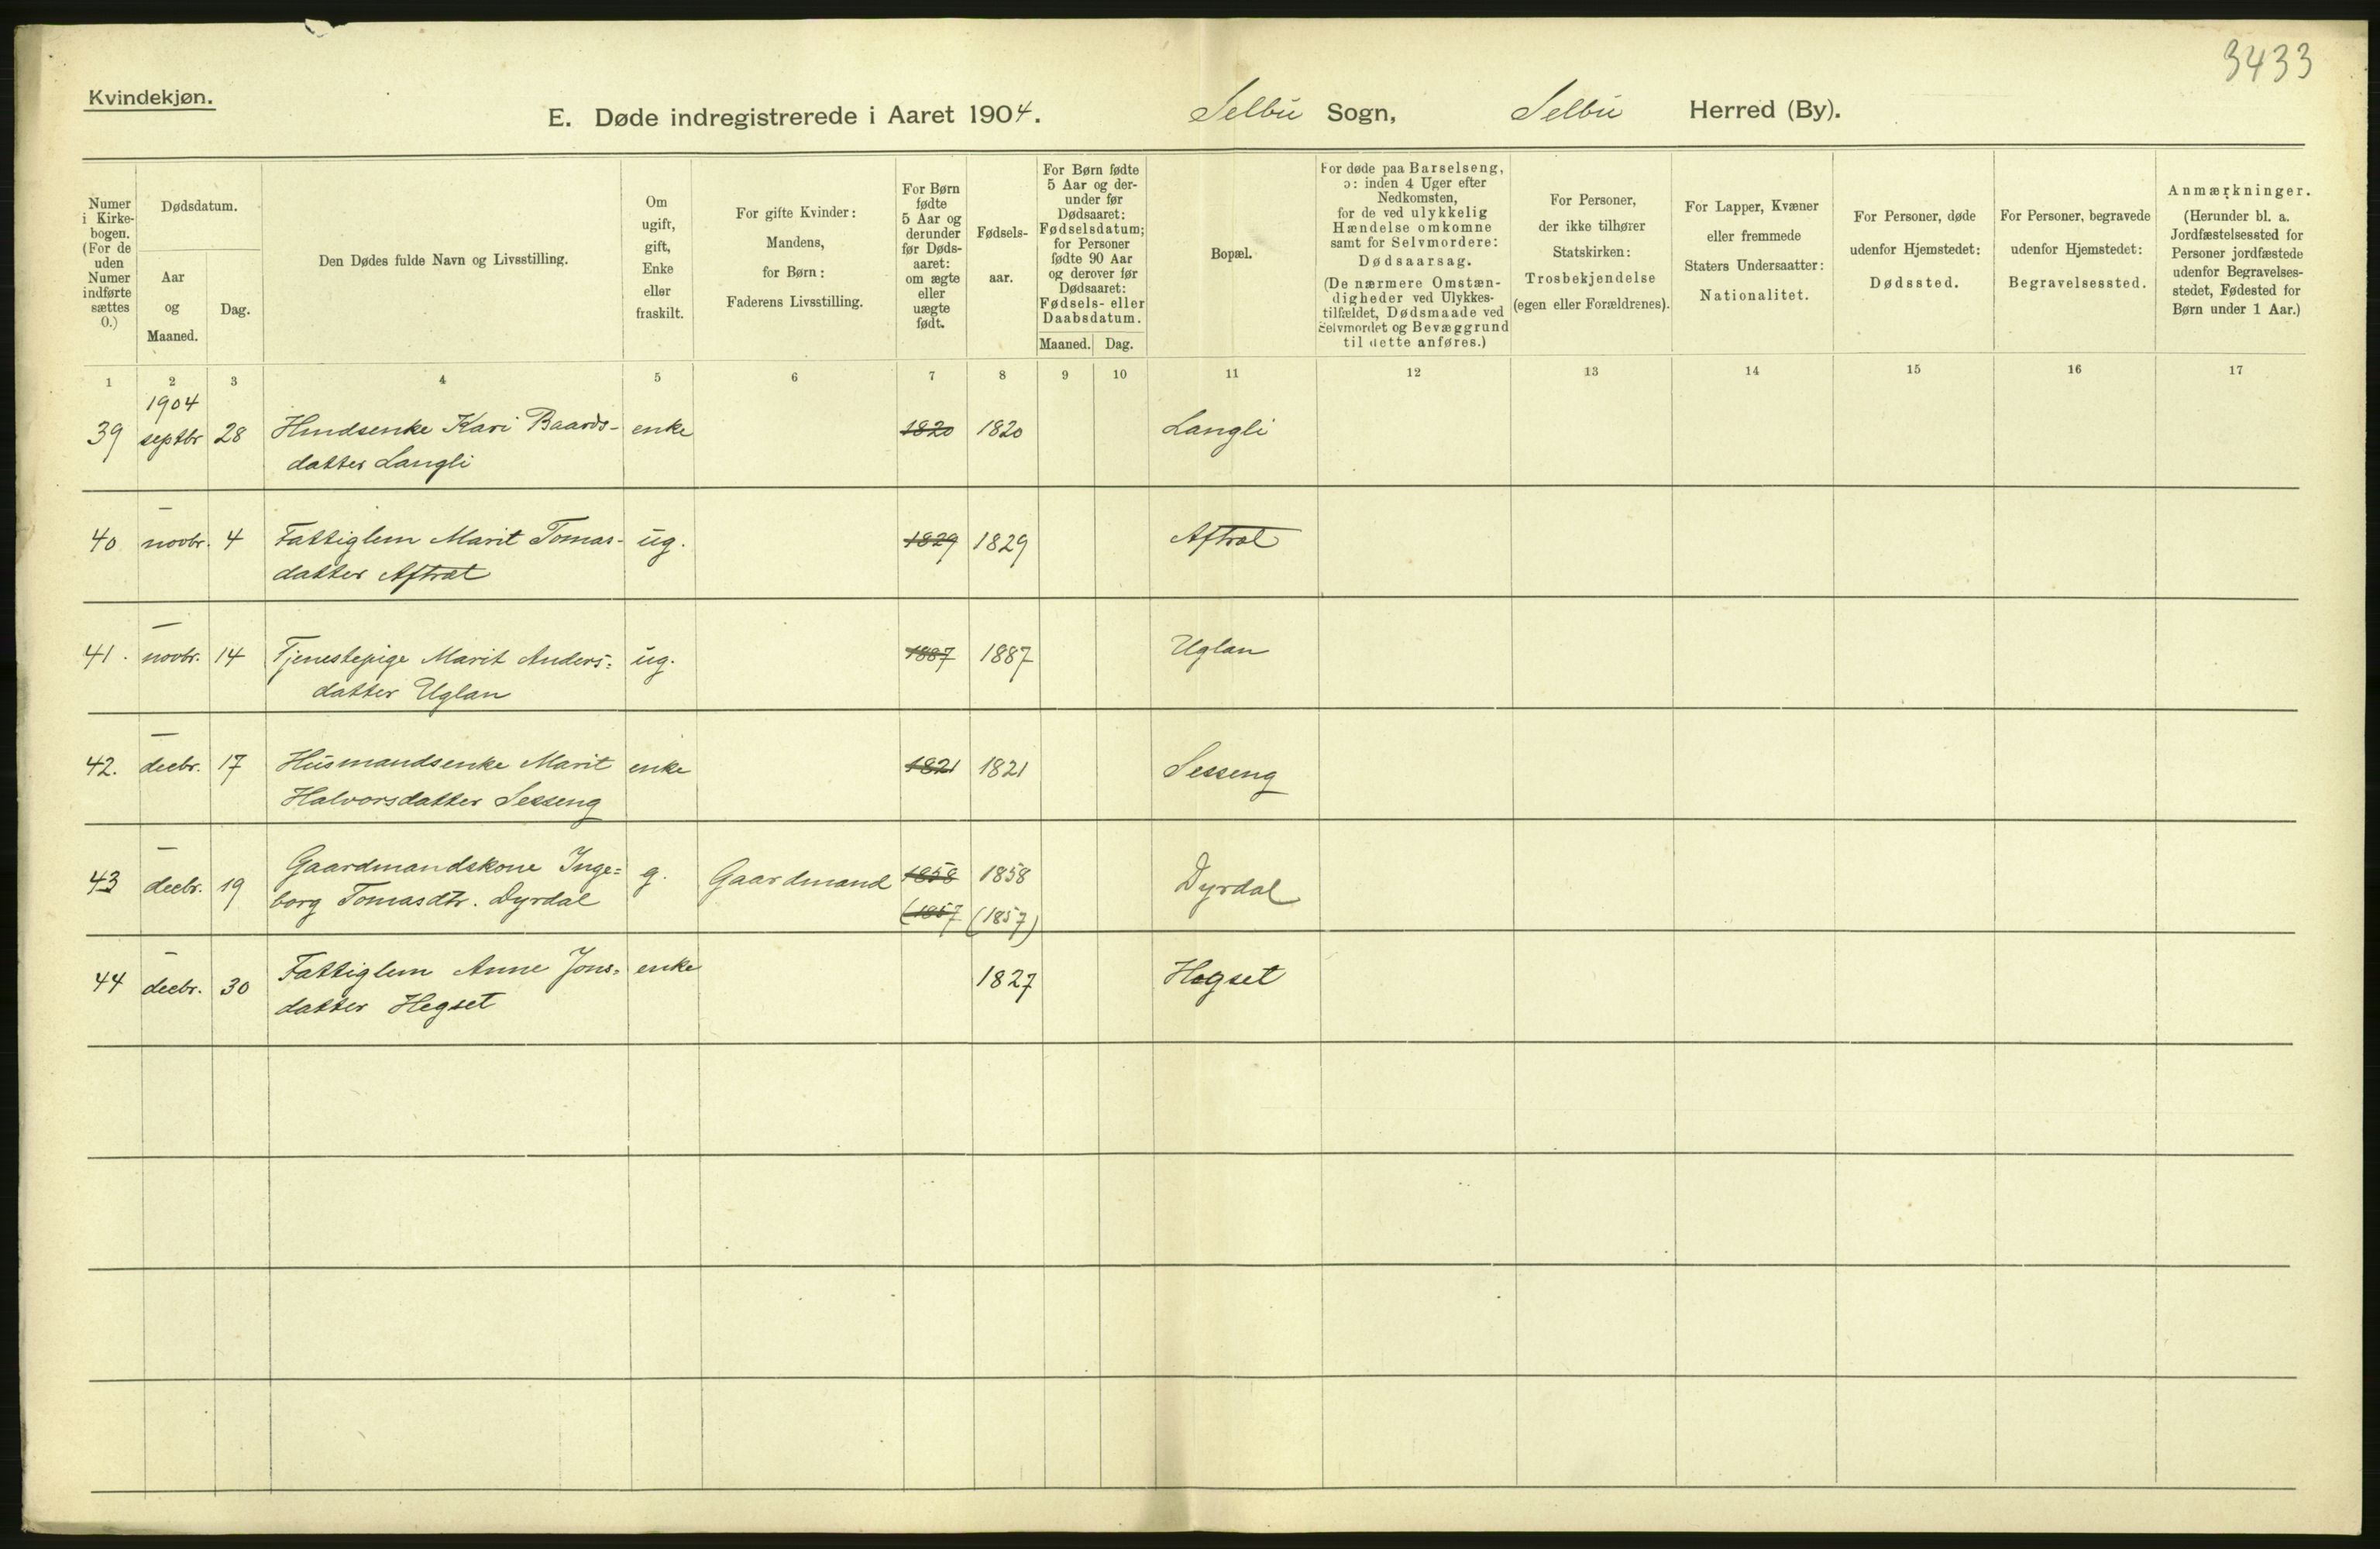 3433
Kvindekjøn.
E. Døde indregistrerede i Aaret 1904. Selbu Sogn, Selbu Herred (By).
Numer i Kirke- bogen. (For de uden Numer indførte sættes 0.)
Dødsdatum.
Aar og Maaned.
Dag.
Den Dødes fulde Navn og Livsstilling.
Om ugift, gift, Enke eller fraskilt.
For gifte Kvinder: Mandens, for Børn: Faderens Livsstilling.
For Børn fødte 5 Aar og derunder før Døds- aaret: om ægte eller uægte født.
Fødsels- aar.
For Børn fødte 5 Aar og der- under før Dødsaaret: Fødselsdatum; for Personer fødte 90 Aar og derover før Dødsaaret: Fødsels- eller Daabsdatum.
Maaned. Dag.
Bopæl.
For døde paa Barselseng, ɔ: inden 4 Uger efter Nedkomsten, for de ved ulykkelig Hændelse omkomne samt for Selvmordere: Dødsaarsag. (De nærmere Omstæn- digheder ved Ulykkes- tilfældet, Dødsmaade ved Selvmordet og Bevæggrund til dette anføres.)
For Personer, der ikke tilhører Statskirken: Trosbekjendelse (egen eller Forældrenes).
For Lapper, Kvæner eller fremmede Staters Undersaatter: Nationalitet.
For Personer, døde udenfor Hjemstedet: Dødssted.
For Personer, begravede udenfor Hjemstedet: Begravelsessted.
Anmærkninger. (Herunder bl. a. Jordfæstelsessted for Personer jordfæstede udenfor Begravelses- stedet, Fødested for Børn under 1 Aar.)
1 2 3 4 5 6 7 8 9 10 11 12 13 14 15 16 17
1904
39 septbr 28 Hmdsenke Kari Baards- enke 1820 1820 Langli
datter Langli
—
40 novbr. 4 Fattiglem Marit Tomas- ug. 1829 1829 Aftret
datter Aftret
—
41. novbr. 14 Tjenestepige Marit Anders= ug. 1887 1887 Uglan
datter Uglan
—
42. decbr. 17 Husmandsenke Marit enke 1821 1821 Sesseng
Halvorsdatter Sesseng
—
43 decbr. 19 Gaardmandskone Inge= g. Gaardmand 1858 1858 Dyrdal
borg Tomasdtr. Dyrdal (1857 (1857)
—
44 decbr. 30 Fattiglem Anne Jons= enke 1827 Hegset
datter Hegset